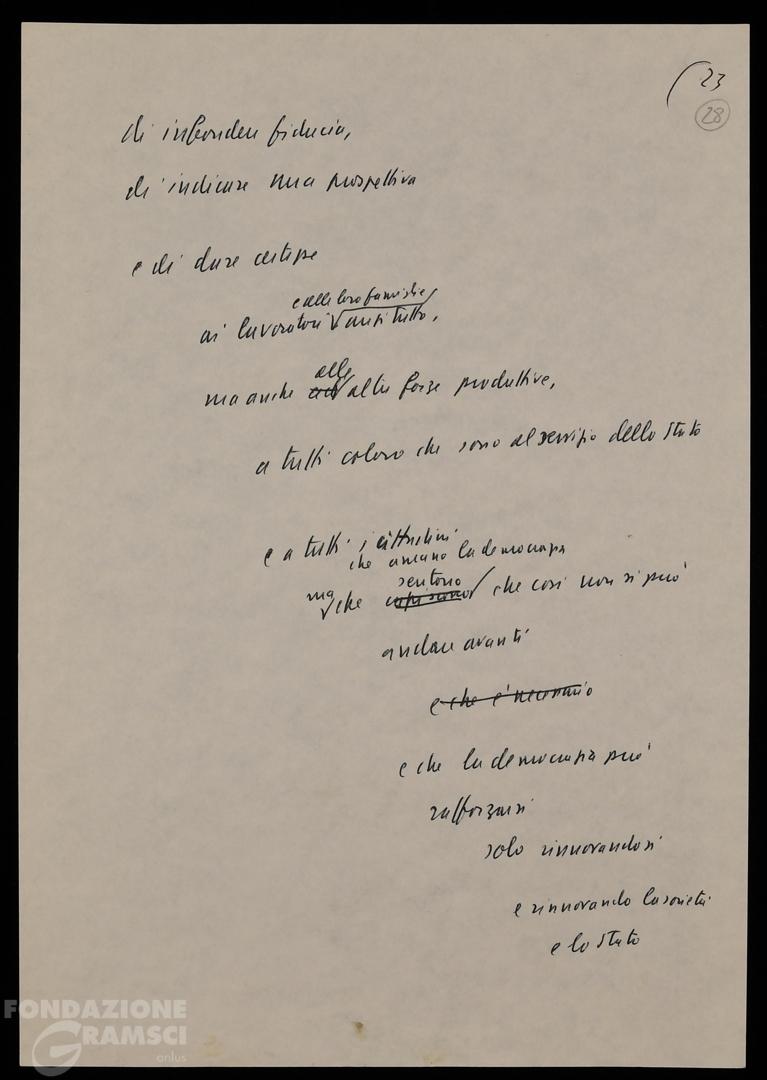 23
28
di infondere fiducia,
di indicare una prospettiva
e di dare certezze
e alle loro famiglie
ai lavoratori anzi tutto,
alle
ma anche altre forze produttive,
a tutti coloro che sono al servizio dello Stato
e a tutti i cittadini
che amano la democrazia
sentono
ma che capiscono che così non si può
andare avanti
e che è necessario
e che la democrazia può
rafforzarsi
solo rinnovandosi
e rinnovando la società
e lo Stato
FONDAZIONE
GRAMSCI
onlus